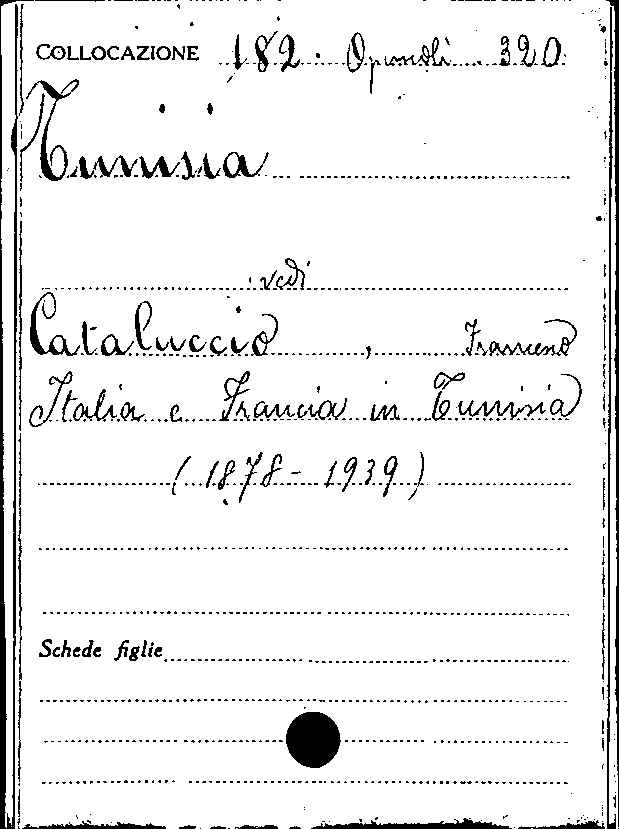 COLLOCAZIONE 182. Opuscoli. 320
Tunisia
vedi
Cataluccio, Francesco
Italia e Francia in Tunisia
(1878-1939)
Schede figlie